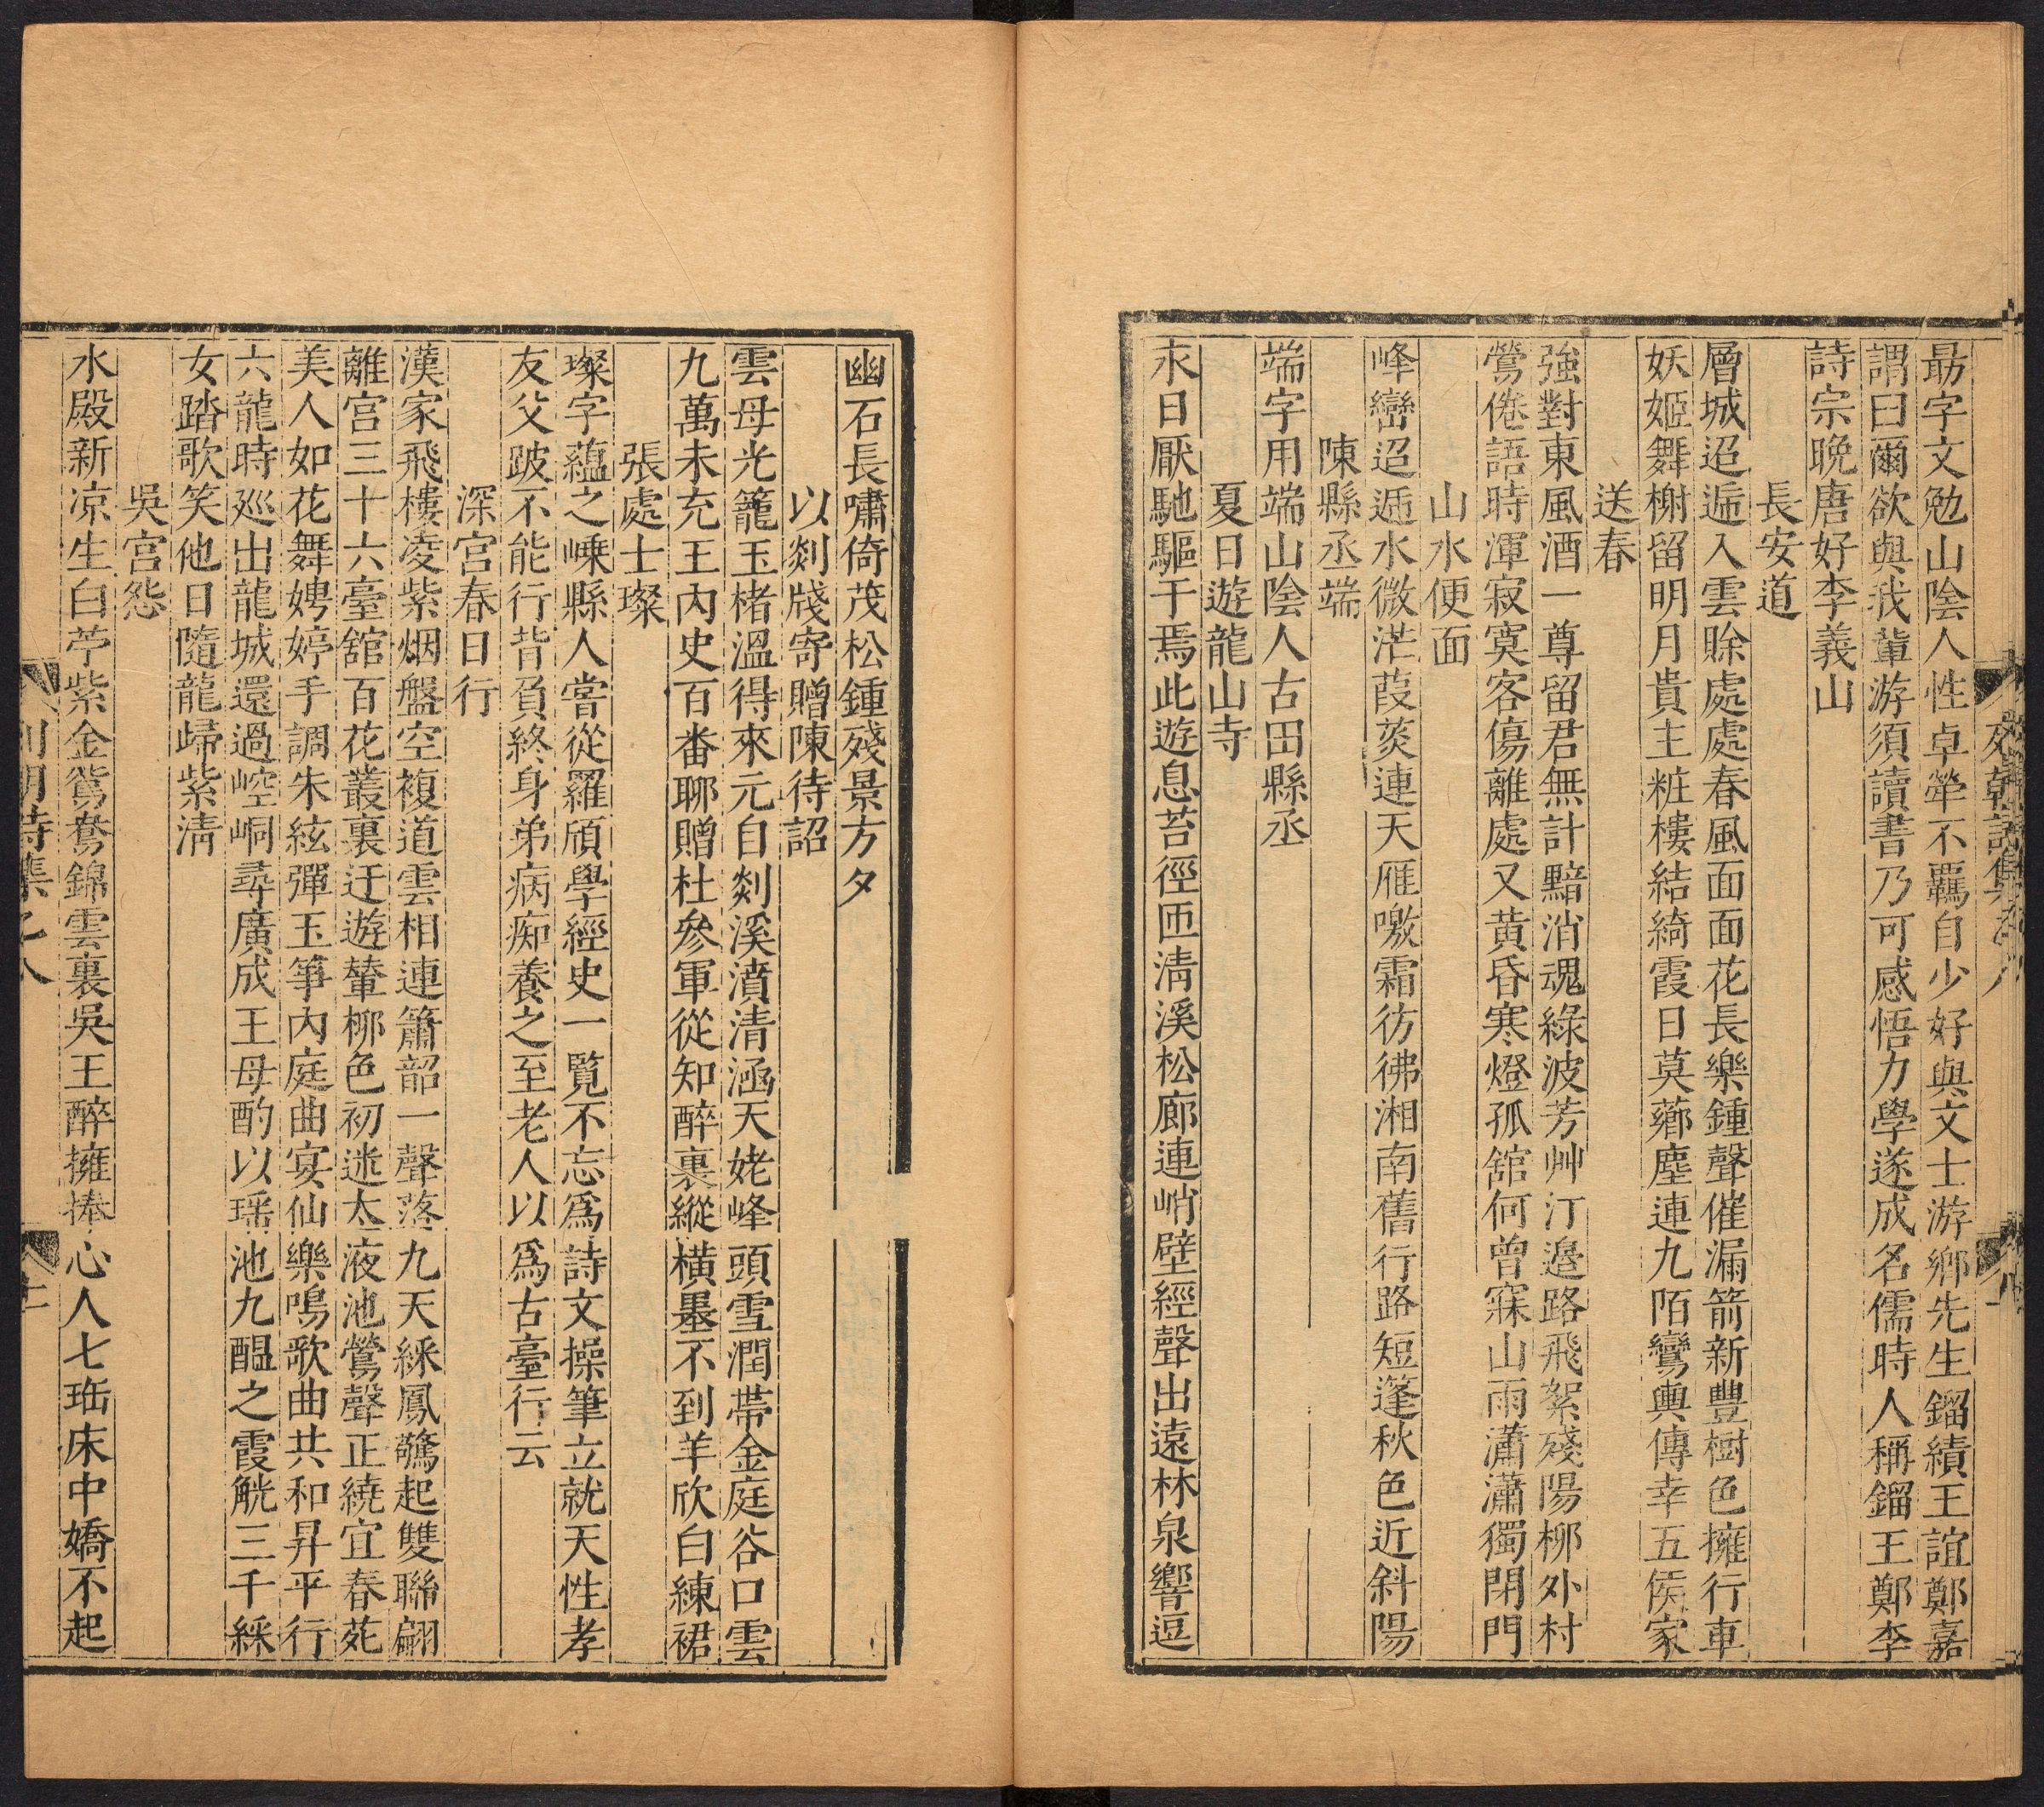 最字文勉山陰人性卓犖不羈自少好與文士游鄉先生鎦績王誼鄭嘉
謂曰爾欲與我輩游須讀書乃可感悟力學遂成名儒時人稱鎦王鄭李
詩宗晚唐好李義山
長安道
層城迢遞入雲賒處處春風面面花長樂鍾聲催漏箭新豐樹色擁行車
妖姬舞榭留明月貴主粧樓結綺霞日莫薌塵連九陌鸞輿傳幸五侯家
送春
強對東風酒一尊留君無計黯消魂綠波芳艸汀邉路飛絮殘陽栁外村
鶯倦語時渾寂寞客傷離處又黄昏寒燈孤舘何曾寐山雨瀟瀟獨閉門
山水便面
峰巒迢遞水微茫葭菼連天雁嗷霜彷彿湘南舊行路短篷秋色近斜陽
陳縣丞端
端字用端山陰人古田縣丞
夏日遊龍山寺
永日厭馳驅于焉此遊息苔徑匝清溪松廊連峭壁經聲出遠林泉響逗
幽石長嘯倚茂松鍾殘景方夕
以剡牋寄贈陳待詔
雲母光籠玉楮溫得來元自剡溪濆清涵天姥峰頭雪潤帶金庭谷口雲
九萬未充王內史百番聊贈杜參軍從知醉裏縱橫墨不到羊欣白練裙
張處士璨
璨字蘊之嵊縣人嘗從羅頎學經史一覽不忘爲詩文操筆立就天性孝
友父跛不能行背負終身弟病痴養之至老人以爲古臺行云
深宫春日行
漢家飛樓凌紫烟盤空複道雲相連簫韶一聲落九天綵鳳驚起雙聯翩
離宫三十六臺舘百花叢裏迂遊輦栁色初迷太液池鶯聲正繞宜春苑
美人如花舞娉婷手調朱絃彈玉箏內庭曲宴仙樂鳴歌曲共和昇平行
六龍時廵出龍城還過崆峒尋廣成王母酌以瑶池九醖之霞觥三千綵
女踏歌笑他日隨龍歸紫清
吳宫怨
水殿新凉生白苧紫金鴛鴦錦雲裏吳王醉擁捧心人七瑤床中嬌不起
列朝詩集乙八